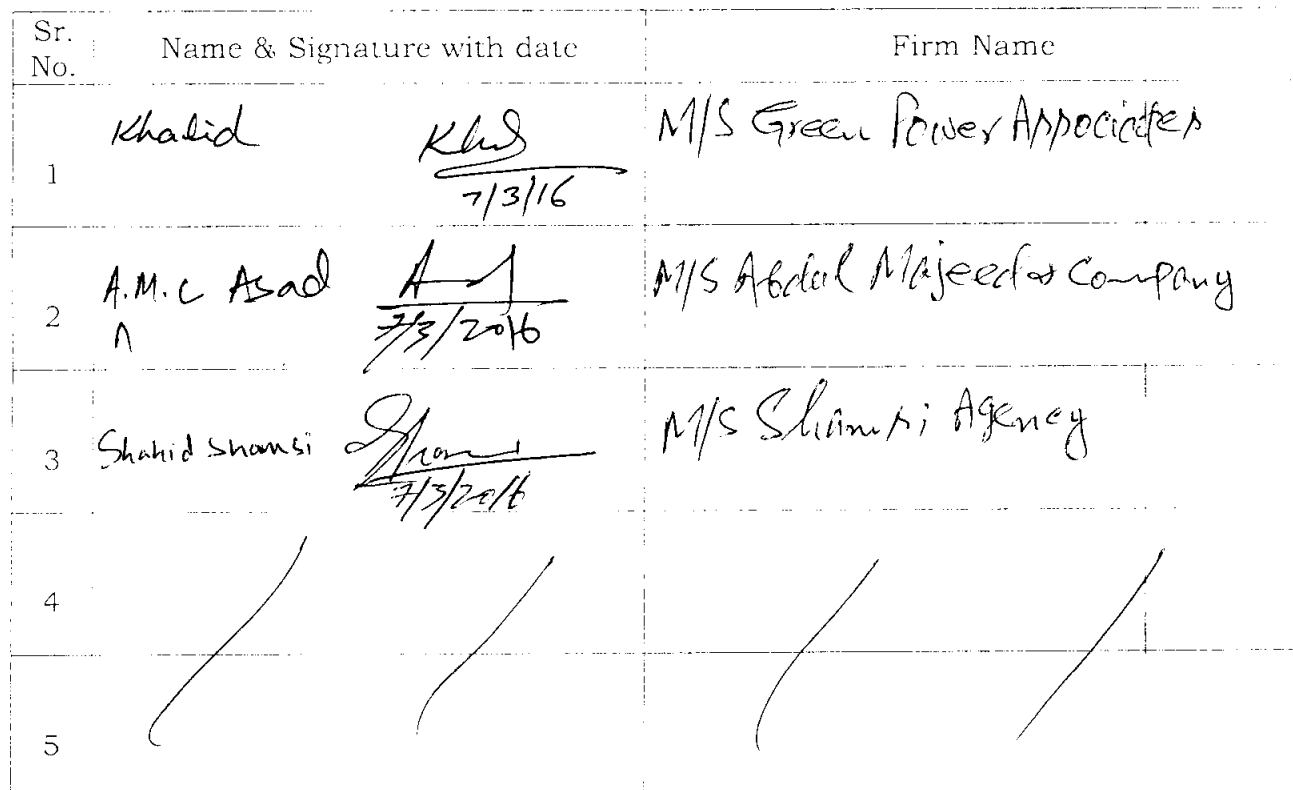 Sr. No. Name & Signature with date Firm Name
1 Khalid 7/3/16 M/S Green Power Associates
2 A.M.C Asad 7/3/2016 M/S Abdul Majeed & Company
3 Shahid Shamsi 7/3/2016 M/S Shamsi Agency
4
5